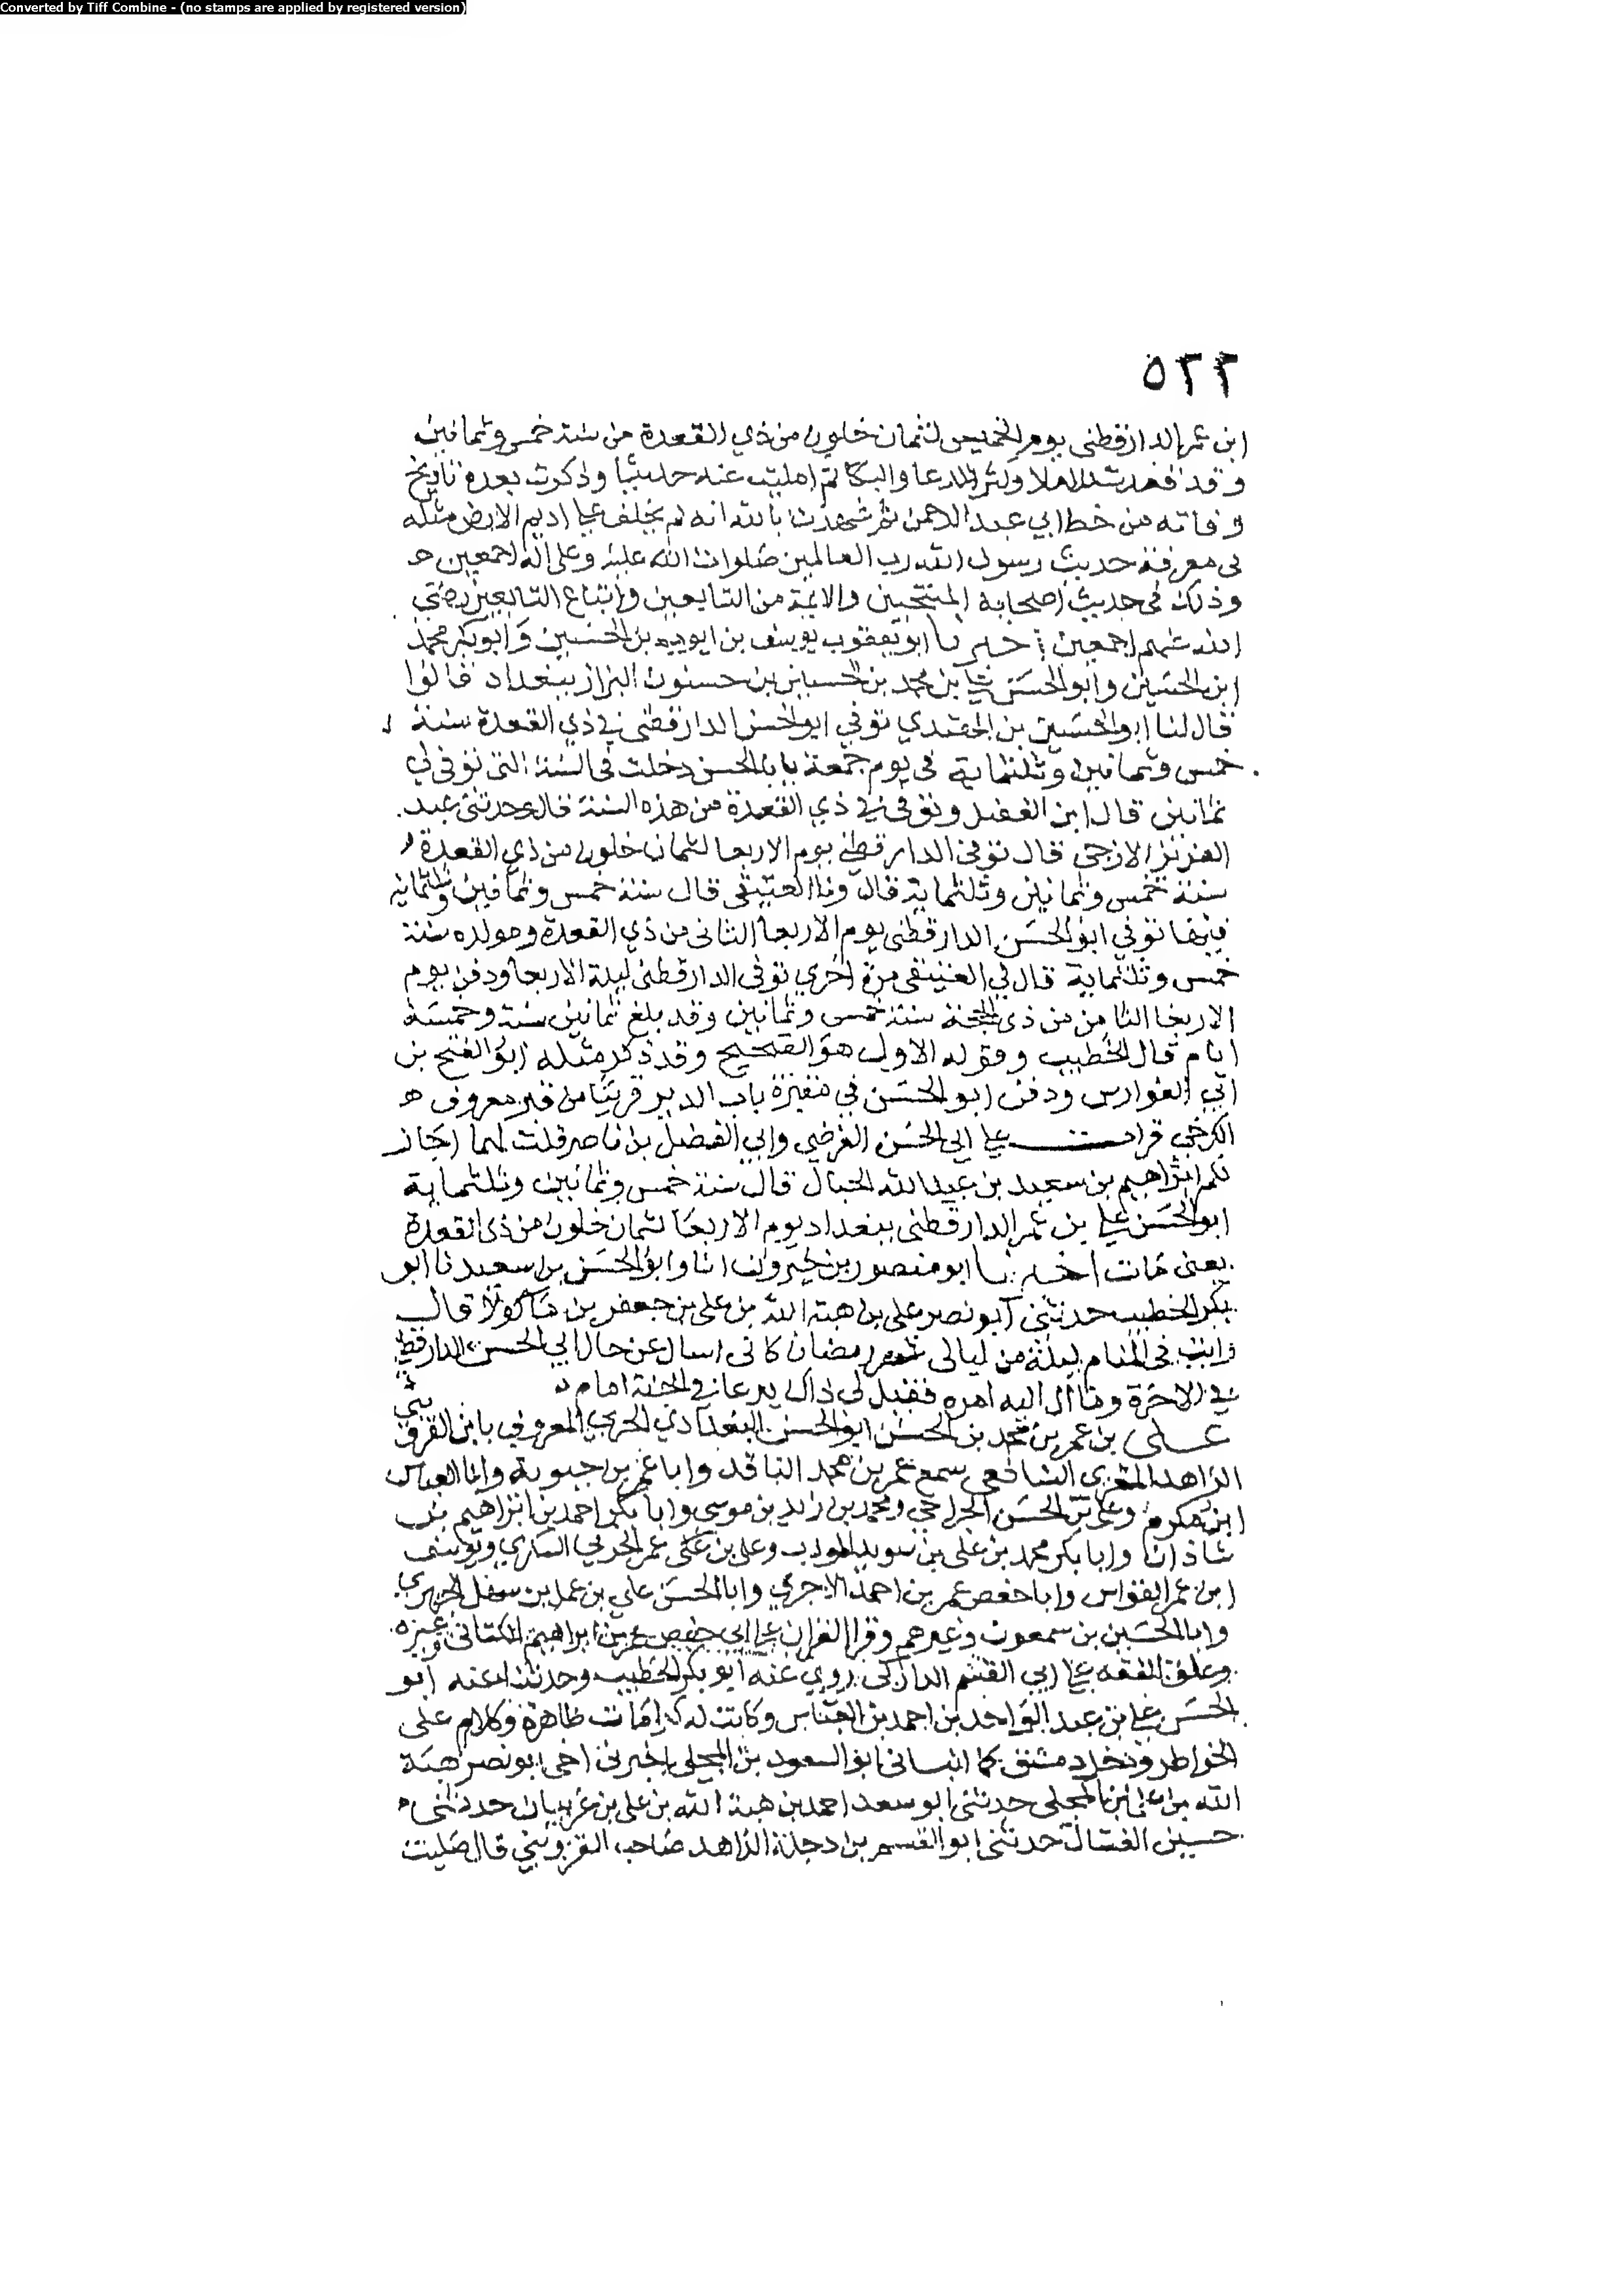 Converted by Tiff Combine - (no stamps are applied by registered version)
٥٢٢
ابن عمر الدارقطني يوم الخميس لثمان خلون من ذي القعدة من سنة خمس وثمانين
وقد قعدت للاملا ولثر الدعا والبكا ثم امليت عنه حديثا وذكرت بعده تاريخ
وفاته من خط ابي عبد الرحمن ثم شهدت بالله انه لم يخلف علي اديم الارض مثله
في معرفة حديث رسول الله رب العالمين صلوات الله عليه وعلى اله اجمعين
وذلك في حديث اصحابه المنتخبين والائمة من التابعين واتباع التابعين رضي
الله عنهم اجمعين اخبرنا ابو يعقوب يوسف بن ايوب بن الحسين وابو بكر محمد
ابن الحسين وابو الحسن علي بن محمد بن الحسين بن حسنون البزاز ببغداد قالوا
قال لنا ابو الحسين بن المهتدي توفي ابو الحسن الدارقطني في ذي القعدة سنة
خمس وثمانين وثلثماية في يوم جمعة يابا الحسن دخلت في السنة التي توفي لي
ثمانين قال ابن الفضل وتوفي في ذي القعدة من هذه السنة قال وحدثني عبد
العزيز الازجي قال توفي الدارقطني يوم الاربعا لثمان خلون من ذي القعدة
سنة خمس وثمانين وثلثماية قال ونا العتيقي قال سنة خمس وثمانين وثلثماية
فيها توفي ابو الحسن الدارقطني يوم الاربعا الثاني من ذي القعدة ومولده سنة
خمس وثلثماية قال لي العتيقي مرة اخري توفي الدارقطني ليلة الاربعا ودفن يوم
الاربعا الثامن من ذي الحجة سنة خمس وثمانين وقد بلغ ثمانين سنة وخمسة
ايام قال الخطيب وقوله الاول هو الصحيح وقد ذكر مثله ابو الفتح بن
ابي الفوارس ودفن ابو الحسن في مقبرة باب الدير قريبا من قبر معروف
الكرخي قرات علي ابي الحسن الفرضي وابي الفضل بن ناصر قلت لهما اجاز
لكم ابراهيم بن سعيد بن عبد الله الحبال قال سنة خمس وثمانين وثلثماية
ابو الحسن علي بن عمر الدارقطني ببغداد يوم الاربعا لثمان خلون من ذي القعدة
يعني مات اخبرنا ابو منصور بن خيرون انا وابو الحسن بن سعيد نا ابو
بكر الخطيب حدثني ابو نصر علي بن هبة الله بن علي بن جعفر بن ماكولا قال
رايت في المنام ليلة من ليالي شهر رمضان كاني اسال عن حال ابي الحسن الدارقطني
في الاخرة وما ال اليه امره فقيل لي ذاك يدعا في الجنة امام
علي بن عمر بن محمد بن الحسن ابو الحسن البغدادي الحربي المعروف بابن القزويني
الزاهد المقري الشافعي سمع عمر بن محمد الناقد وابا عمر بن حيوية وابا العباس
ابن مكرم وعلي بن الحسن الجراحي ومحمد بن زيد بن موسي وابا بكر احمد بن ابراهيم بن
شاذان وابا بكر محمد بن علي بن سويد المودب وعلي بن عمر الحربي السكري ويوسف
ابن عمر القواس وابا حفص عمر بن احمد الاجري وابا الحسن علي بن عمر بن سهل الحريري
وابا الحسين بن سمعون وغيرهم وقرا القران علي ابي حفص عمر بن ابراهيم الكتاني وغيره
وعلق الفقه علي ابي القسم الداركي روي عنه ابو بكر الخطيب وحدثنا عنه ابو
الحسن علي بن عبد الواحد بن احمد بن العباس وكانت له كرامات ظاهرة وكلام على
الخواطر ودخل دمشق كما انباني ابو السعود بن المجلي اخبرني اخي ابو نصر هبة
الله بن علي بن المجلي حدثني ابو سعد احمد بن هبة الله بن علي بن غريبان حدثني
حسين الغسال حدثني ابو القسم بن دجلة الزاهد صاحب القزويني قال صليت